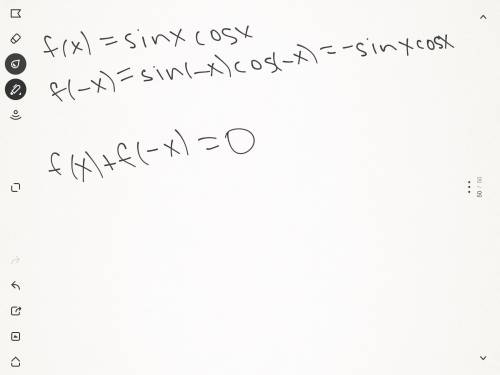 f(x) = sinx cosx
f(-x) = sin(-x) cos(-x) = -sinx cosx
f(x) + f(-x) = 0
50 / 50